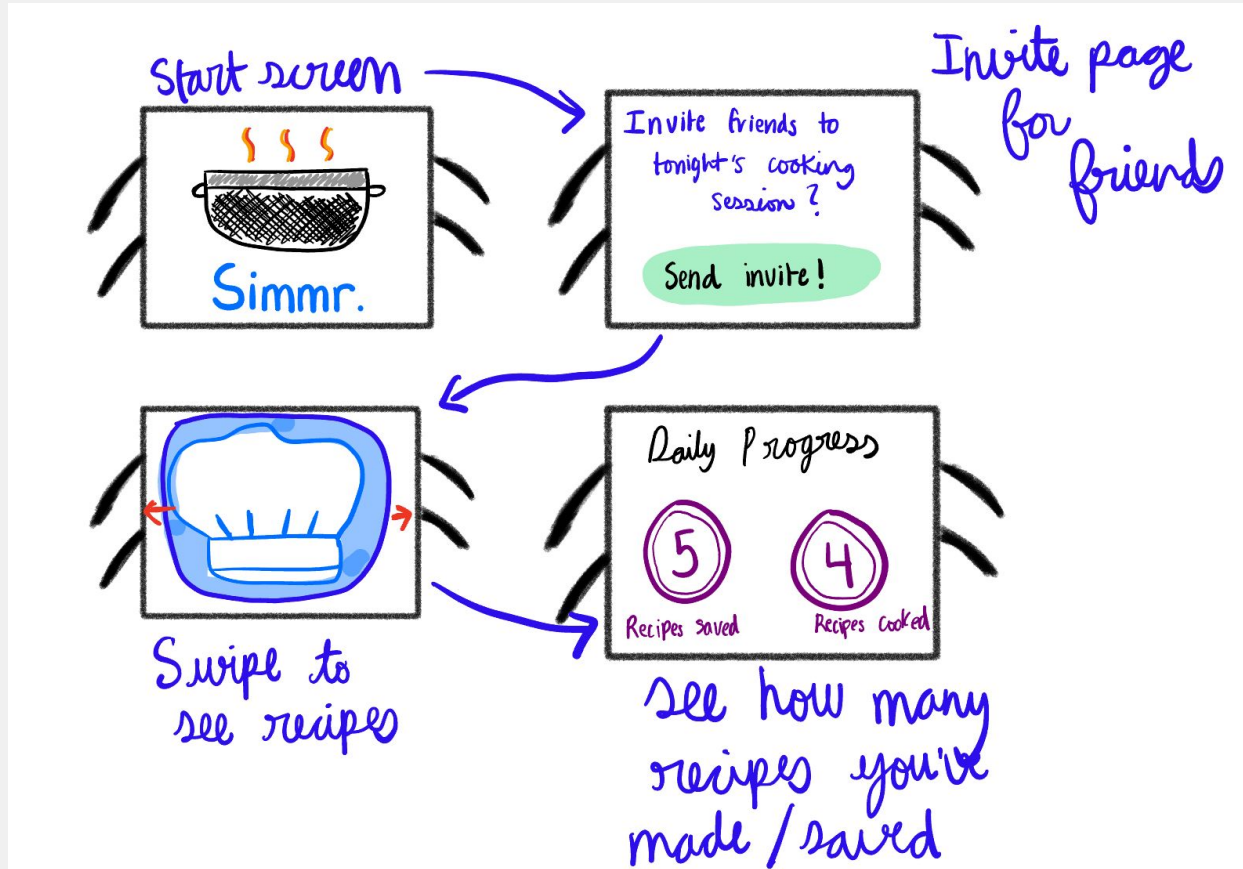 Start screen
Simmr.
Invite friends to
tonight's cooking
session?
Send invite!
Invite page
for
friends
Swipe to
see recipes
Daily Progress
5
4
Recipes saved
Recipes cooked
see how many
recipes you've
made/saved